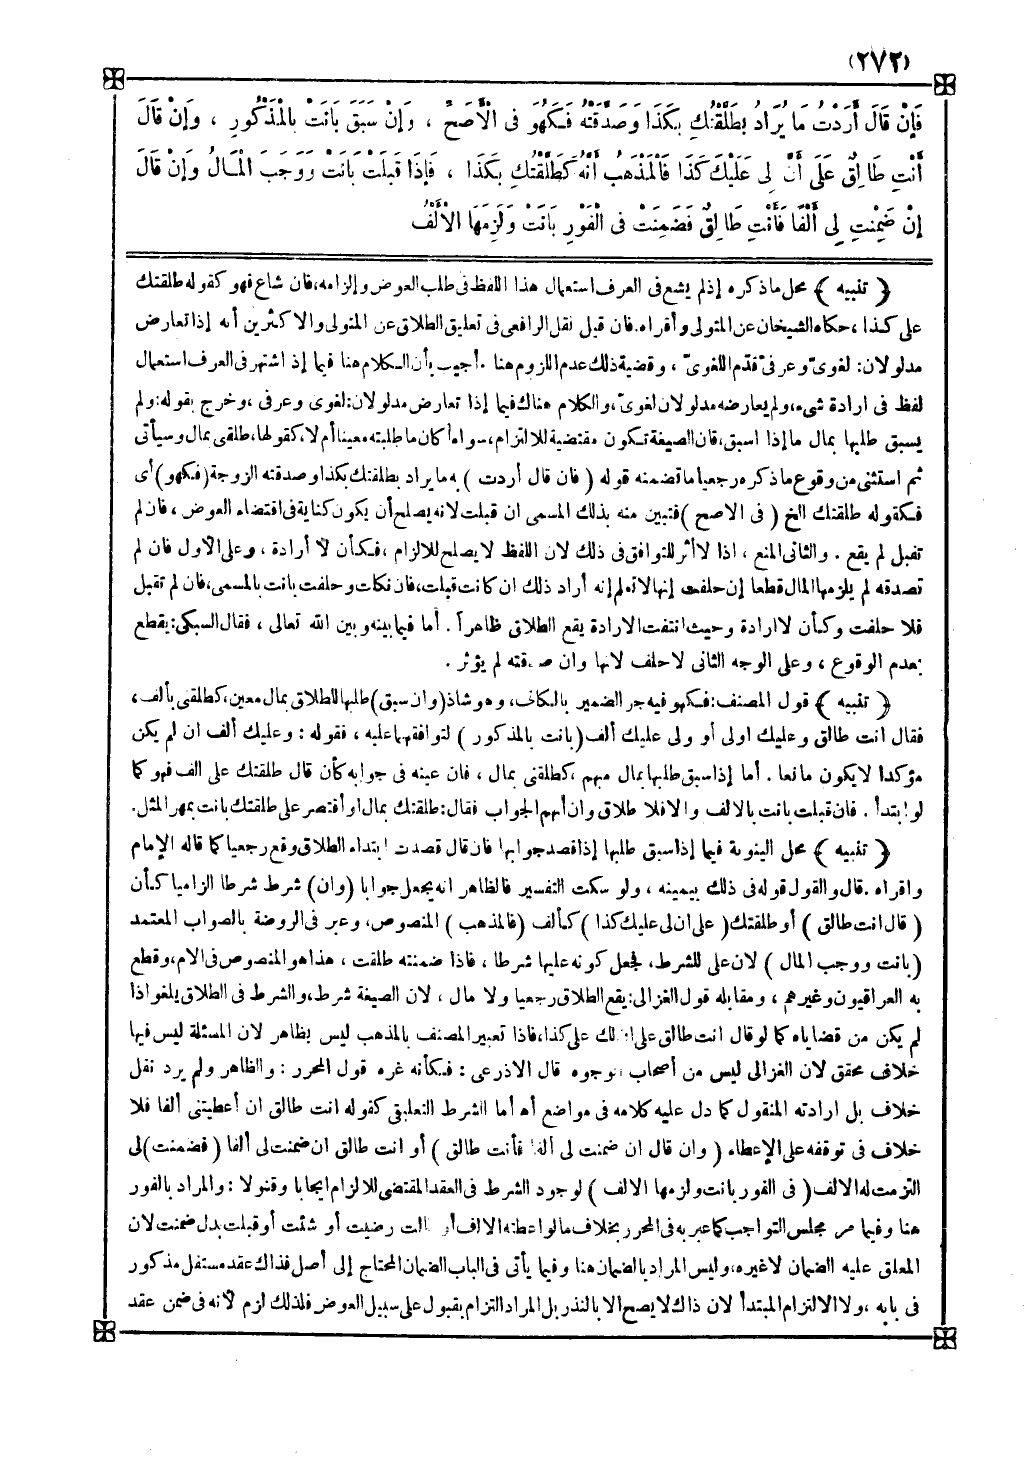 (٢٧٢)
فَإِنْ قَالَ أَرَدْتُ مَا يُرَادُ بِطَلَّقْتُكِ بِكَذَا وَصَدَّقَتْهُ فَكَهُوَ فِى الْأَصَحِّ ، وَإِنْ سَبَقَ بَانَتْ بِالْمَذْكُورِ ، وَإِنْ قَالَ
أَنْتِ طَالِقٌ عَلَى أَنَّ لِى عَلَيْكِ كَذَا فَالْمَذْهَبُ أَنَّهُ كَطَلَّقْتُكِ بِكَذَا ، فَإِذَا قَبِلَتْ بَانَتْ وَوَجَبَ الْمَالُ وَإِنْ قَالَ
إِنْ ضَمِنْتِ لِى أَلْفًا فَأَنْتِ طَالِقٌ فَضَمِنَتْ فِى الْفَوْرِ بَانَتْ وَلَزِمَهَا الْأَلْفُ
﴿ تنبيه ﴾ محل ماذكره إذلم يشع فى العرف استعمال هذا اللفظ فى طلب العوض و إلزامه،فان شاع فهو كقوله طلقتك
على كذا ، حكاه الشيخان عن المتولى وأقراه.فان قيل نقل الرافعى فى تعليق الطلاق عن المتولى والاكثرين أنه إذا تعارض
مدلولان: لغوىّ وعرفىّ قدّم اللغوىّ ، وقضية ذلك عدم اللزوم هنا .أجيب بأن الكلام هنا فيما إذ اشتهر فى العرف استعمال
لفظ فى ارادة شىء،ولم يعارضه مدلولان لغوىّ،والكلام هناك فيما إذا تعارض مدلولان:لغوى وعرفى ،وخرج بقوله:ولم
يسبق طلبها بمال ما إذا اسبق،فان الصيغة تكون مقتضية للالتزام،سواء أكان ماطلبته معينا أم لا،كقولها،طلقى بمال وسيأتى
ثم استثنى من وقوع ماذكره رجعيا ماتضمنه قوله ( فان قال أردت ) به مايراد بطلقتك بكذا وصدقته الزوجة(فكهو)أى
فكقوله طلقتك الخ ( فى الاصح )فتبين منه بذلك المسمى ان قبلت لانه يصلح أن يكون كناية فى اقتضاء العوض ، فان لم
تقبل لم يقع . والثانى المنع ، اذا لا أثر للتوافق فى ذلك لان اللفظ لا يصلح للالزام ،فكأن لا أرادة ، وعلى الاول فان لم
تصدقه لم يلزمها المال قطعا إن حلفت إنها لاتعلم إنه أراد ذلك ان كانت قبلت،فان نكلت وحلفت بانت بالمسمى،فان لم تقبل
فلا حلفت وكأن لا ارادة وحيث انتفت الارادة يقع الطلاق ظاهراً . أما فيما بينه وبين الله تعالى ، فقال السبكى:يقطع
بعدم الوقوع ، وعلى الوجه الثانى لاحلف لانها وان صدقته لم يؤثر .
﴿ تنبيه ﴾ قول المصنف:فكهو فيه جر الضمير بالكاف، وهو شاذ(وان سبق)طلبها للطلاق بمال معين،كطلقنى بألف،
فقال انت طالق وعليك اولى أو ولى عليك ألف(بانت بالمذكور ) لتوافقهما عليه ، فقوله : وعليك ألف ان لم يكن
مؤكدا لايكون مانعا . أما إذاسبق طلبها بمال مبهم ،كطلقنى بمال ، فان عينه فى جوابه كأن قال طلقتك على الف فهو كما
لو ابتدأ . فان قبلت بانت بالالف والافلا طلاق وان أبهم الجواب فقال: طلقتك بمال اوأقتصر على طلقتك بانت بمهر المثل.
﴿ تنبيه ﴾ محل البنونة فيما إذاسبق طلبها إذا قصد جوابها فان قال قصدت ابتداء الطلاق وقع رجعيا كما قاله الإمام
واقراه .قال والقول قوله فى ذلك بيمينه ، ولو سكت التفسير فالظاهر انه يجعل جوابا (وان) شرط شرطا الزاميا كأن
( قال انت طالق ) أو طلقتك( على ان لى عليك كذا ) كألف (فالمذهب ) المنصوص، وعبر فى الروضة بالصواب المعتمد
(بانت ووجب المال ) لان على للشرط، فجعل كونه عليها شرطا ، فاذا ضمنته طلقت ، هذا هو المنصوص فى الام،وقطع
به العراقيون وغيرهم ، ومقابله قول الغزالى:يقع الطلاق رجعيا ولا مال ، لان الصيغة شرط،والشرط فى الطلاق يلغو اذا
لم يكن من قضاياه كما لو قال انت طالق على ان لك على كذا،فاذا تعبير المصنف بالمذهب ليس بظاهر لان المسئلة ليس فيها
خلاف محقق لان الغزالى ليس من أصحاب الوجوه قال الاذرعى : فكأنه غره قول المحرر : والظاهر ولم يرد نقل
خلاف بل ارادته المنقول كما دل عليه كلامه فى مواضع أه أما الشرط التعليقى كقوله انت طالق ان أعطيتنى ألفا فلا
خلاف فى توقفه على الإعطاء ( وان قال ان ضمنت لى ألفا فأنت طالق ) أو انت طالق ان ضمنت لى ألفا ( فضمنت)لى
التزمت له الالف( فى الفور بانت ولزمها الالف ) لوجود الشرط فى العقد المقتضى للالزام ايجابا وقنولا : والمراد بالفور
هنا وفيما مر مجلس التواجب كما عبر به فى المحرر بخلاف مالو اعطته الالف أو قالت رضيت أو شئت أو قبلت بدل ضمنت لان
المعلق عليه الضمان لاغيره،وليس المراد بالضمان هنا وفيما يأتى فى الباب الضمان المحتاج إلى أصل فذاك عقد مستقل مذكور
فى بابه ،ولا الالتزام المبتدأ لان ذاك لايصح الا بالنذر بل المراد التزام بقبول على سبيل العوض فلذلك لزم لأنه فى ضمن عقد